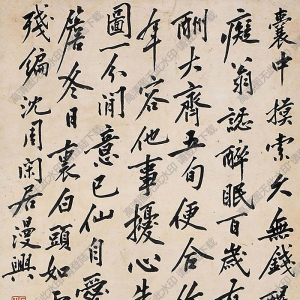 囊中摸索久無錢
癡翁誌醉眠百歲
酬大齊五旬便合
年容他事擾心
圖一分閒意已仙自愛
簷冬日裏白頭如
殘編沈周閑居漫興